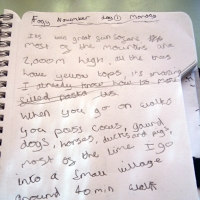 Fogu November day ① Monday
Its was great sun
most of the mountins are
2,000m high, all the tras
have yellow tops, it's
I already know how to
When you go on walks
you pass cows, gaurd
dogs, horses, ducks and pigs,
most of the time I go
into a small village
around 40 min walk